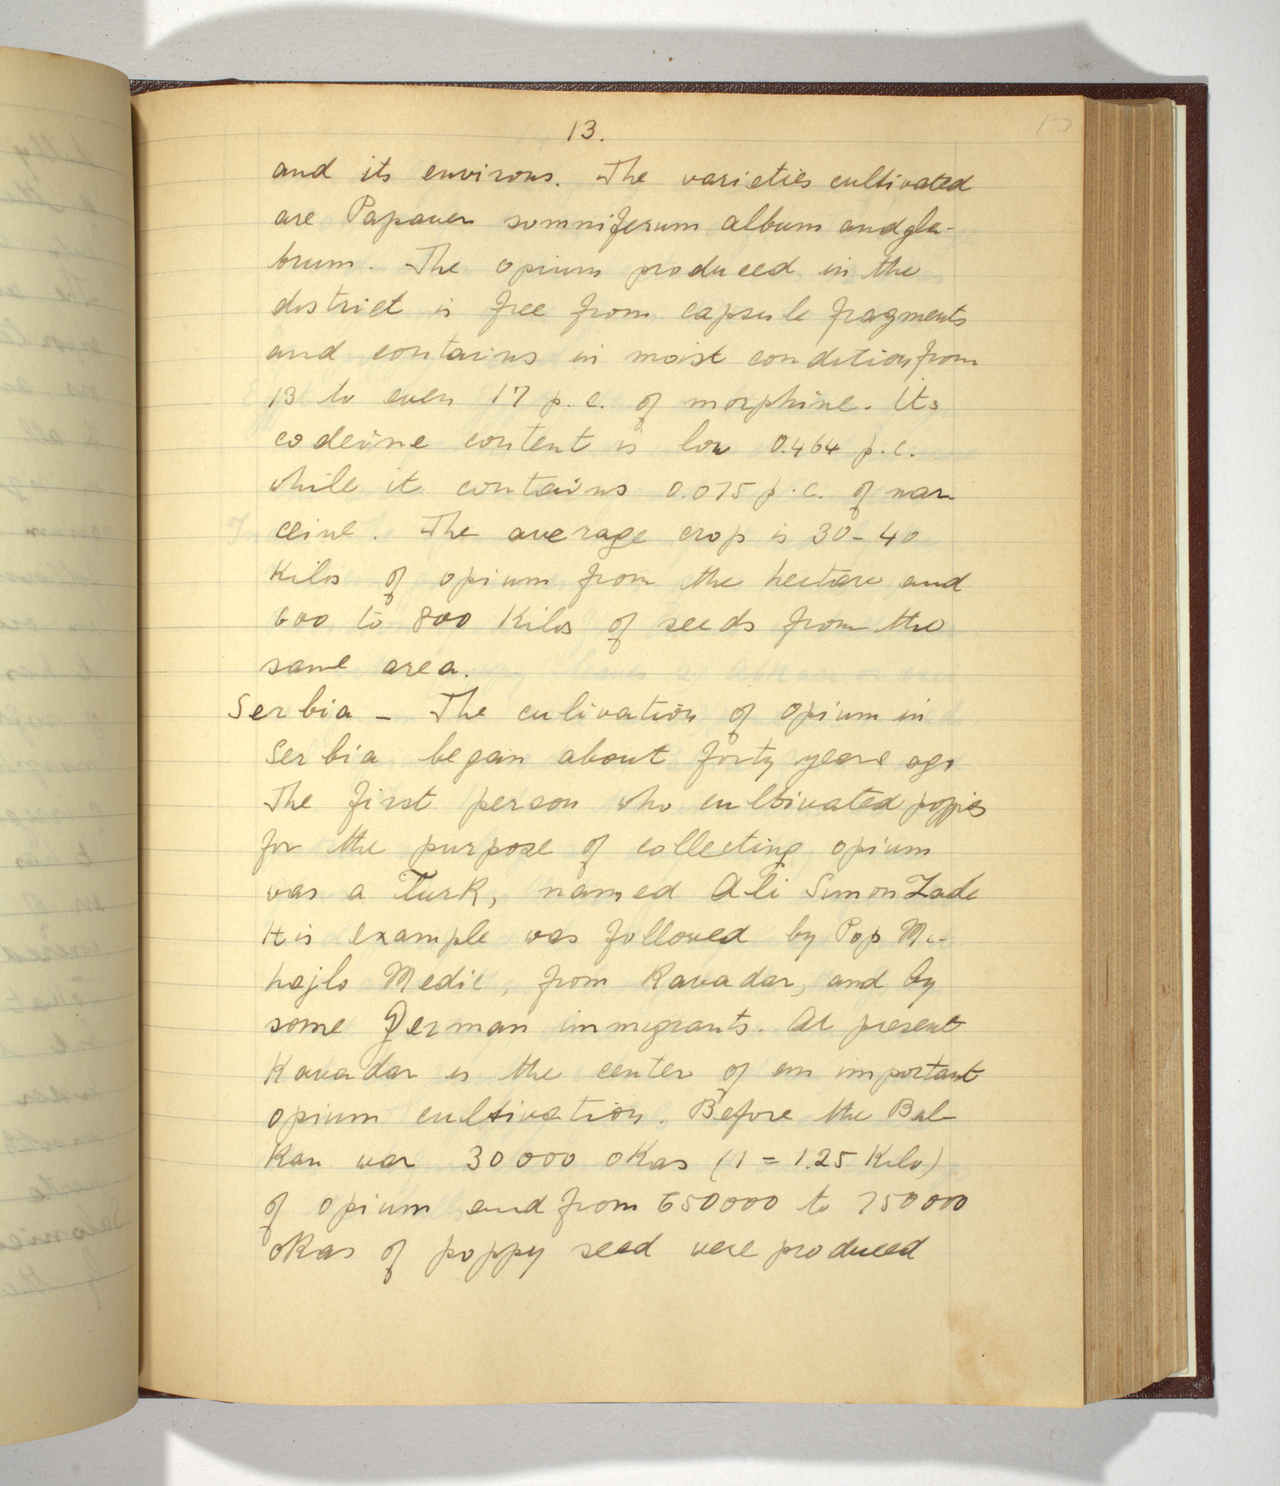 13.
and its environs. The varieties cultivated
are Papaver somniferum album and gla-
brum. The opium produced in the
district is free from capsule fragments
and contains in moist condition from
13 to even 17 p.c. of morphine. Its
codeine content is low 0.464 p.c.
while it contains 0.075 p.c. of nar
ceine. The average crop is 30-40
Kilos of opium from the hectare and
600 to 800 Kilos of seeds from the
same area.
Serbia - The culivation of opium in
Serbia began about forty years ago
The first person who cultivated poppies
for the purpose of collecting opium
was a Turk, named Ali Simon Zade
His example was followed by Pop Mi-
hajlo Medic, from Kavadar, and by
some German immigrants. At present
Kavadar is the center of an important
opium cultivation. Before the Bal-
Kan war 30000 oKas (1 = 1.25 Kilo)
of opium and from 650000 to 750000
oKas of poppy seed were produced